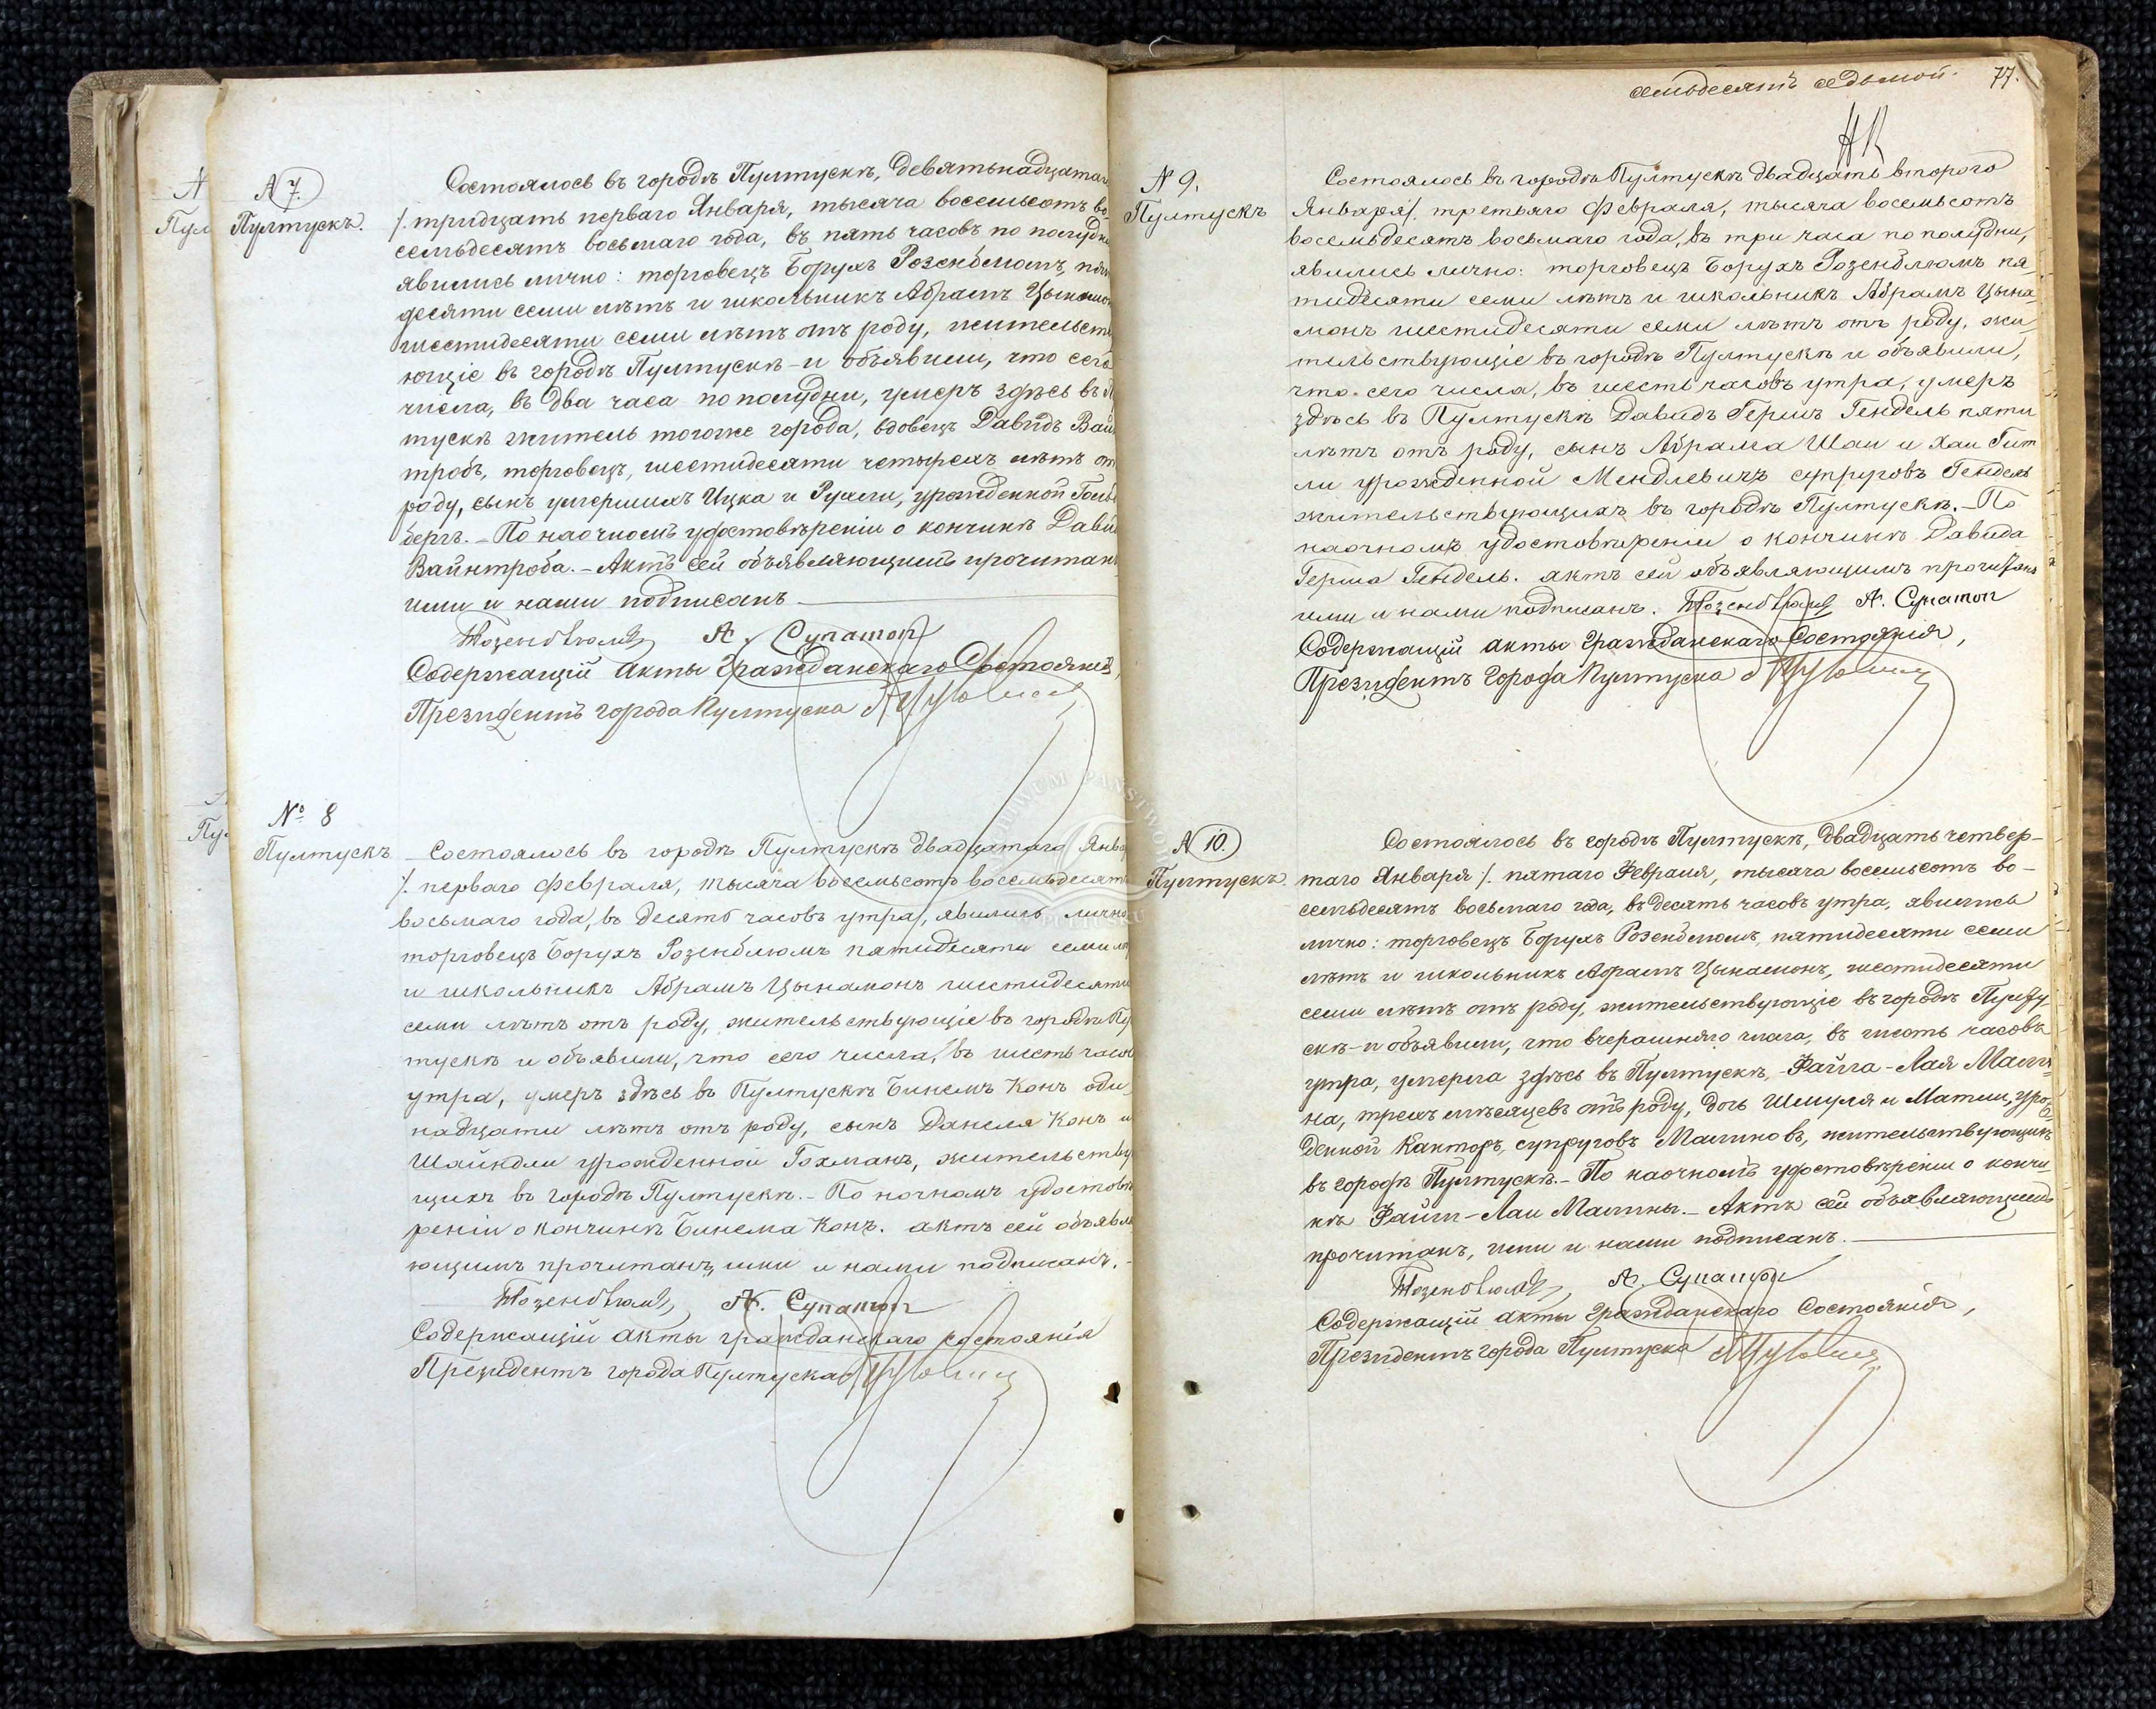 № 7.
Пултускъ.
Состоялось въ городѣ Пултускѣ, девятьнадцатаго
/. тридцать перваго Января, тысяча восемьсотъ во-
семьдесятъ восьмаго года, въ пять часовъ по полудни
явились лично: торговецъ Борухъ Розенблюмъ, пяти
десяти семи лѣтъ и школьникъ Абрамъ Цынамонъ
шестидесяти семи лѣтъ отъ роду, жительству
ющіе въ городѣ Пултускѣ - и объявили, что сего
числа, въ два часа по полудни, умеръ здѣсь въ Пул
тускѣ житель тогоже города, вдовецъ Давидъ Вайн
тробъ, торговецъ, шестидесяти четырехъ лѣтъ отъ
роду, сынъ умершихъ Ицка и Рухли, урожденной Гольд
бергъ. - По наочномъ удостовѣреніи о кончинѣ Давида
Вайнтроба. - Актъ сей объявляющимъ прочитанъ
ими и нами подписанъ
Розенблюмъ А. Cynamon
Содержащій акты Гражданскаго Состоянія,
Президентъ города Пултуска
№ 8
Пултускъ
Состоялось въ городѣ Пултускѣ двадцатаго Янва
/. перваго февраля, тысяча восемьсотъ восемьдесятъ
восьмаго года, въ десять часовъ утра, явились лично
торговецъ Борухъ Розенблюмъ пятидесяти семи лѣ
и школьникъ Абрамъ Цынамонъ шестидесяти
семи лѣтъ отъ роду, жительствующіе въ городѣ Пул
тускѣ и объявили, что сего числа, въ шесть часовъ
утра, умеръ здѣсь въ Пултускѣ Бинемъ Конъ оди
надцати лѣтъ отъ роду, сынъ Даніеля Конъ и
Шайндли урожденной Гохманъ, жительству
щихъ въ городѣ Пултускѣ. - По ночномъ удостовѣ
реніи о кончинѣ Бинема Конъ. актъ сей объявля
ющимъ прочитанъ, ими и нами подписанъ. -
Розенблюмъ А. Cynamon
Содержащій акты гражданскаго состоянія
Президентъ города Пултуска
семьдесятъ седьмой. 77.
№ 9.
Пултускъ
Состоялось въ городѣ Пултускѣ двадцать второго
Января /. третьяго февраля, тысяча восемьсотъ
восемьдесятъ восьмаго года, въ три часа по полудни,
явились лично: торговецъ Борухъ Розенблюмъ пя
тидесяти семи лѣтъ и школьникъ Абрамъ Цына
монъ шестидесяти семи лѣтъ отъ роду, жи
тельствующіе въ городѣ Пултускѣ и объявили,
что сего числа, въ шесть часовъ утра, умеръ
здѣсь въ Пултускѣ Давидъ Гершъ Гендель пяти
лѣтъ отъ роду, сынъ Абрама Шаи и Хаи Гит
ли урожденной Мендлевичъ супруговъ Гендель
жительствующихъ въ городѣ Пултускѣ. - По
наочномъ удостовѣреніи о кончинѣ Давида
Герша Гендель. актъ сей объявляющимъ прочитанъ
ими и нами подписанъ. Розенблюмъ А. Cynamon
Содержащій акты гражданскаго Состоянія,
Президентъ города Пултуска
№ 10.
Пултускъ.
Состоялось въ городѣ Пултускѣ, двадцать четвер-
таго Января /. пятаго Февраля, тысяча восемьсотъ во-
семьдесятъ восьмаго года, въ десять часовъ утра, явились
лично: торговецъ Борухъ Розенблюмъ, пятидесяти семи
лѣтъ и школьникъ Абрамъ Цынамонъ, шестидесяти
семи лѣтъ отъ роду, жительствующіе въ городѣ Пулту-
скѣ - и объявили, что вчерашняго числа, въ шесть часовъ
утра, умерла здѣсь въ Пултускѣ, - Файга-Лая Мали
на, трехъ мѣсяцевъ отъ роду, дочь Шмуля и Матли, уро
денной Канторъ, супруговъ Малиновъ, жительствующихъ
въ городѣ Пултускѣ. - По наочномъ удостовѣреніи о кончи
нѣ Файги-Лаи Малины. - Актъ сей объявляющимъ
прочитанъ, ими и нами подписанъ.
Розенблюмъ А. Cynamon
Содержащій акты гражданскаго Состоянія,
Президентъ города Пултуска